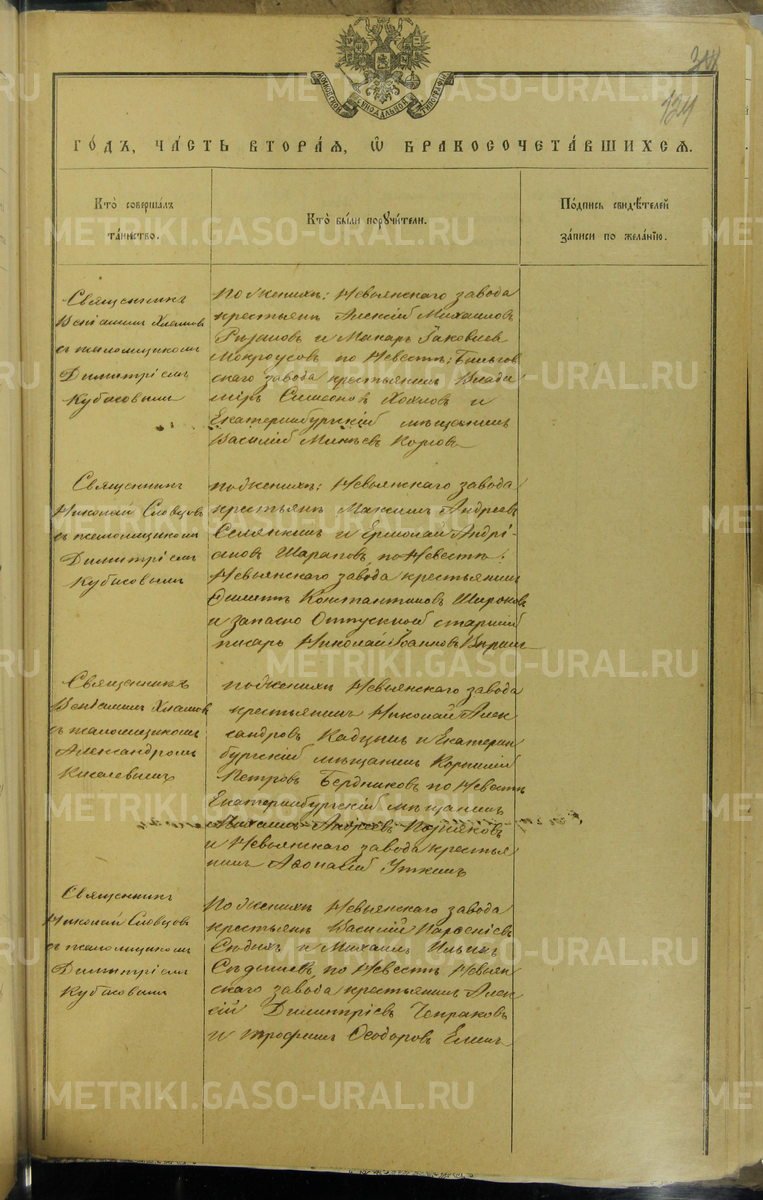 124
ГОДЪ, ЧАСТЬ ВТОРАЯ, Ѡ БРАКОСОЧЕТАВШИХСЯ.
Кто совершалъ
таинство.
Кто были поручители.
Подпись свидѣтелей
записи по желанію.
Священникъ
Веніаминъ Хламовъ
съ псаломщикомъ
Димитріемъ
Кубасовымъ
По женихѣ: Невьянскаго завода
крестьяне Алексій Михаиловъ
и Макаръ Іаковлевъ
Мокроусовъ по невестѣ:
скаго завода крестьянинъ Влади
миръ Симеоновъ Хохловъ и
Екатеринбургскій мѣщанинъ
Василій
Священникъ
Николай Словцовъ
съ псаломщикомъ
Димитріемъ
Кубасовымъ
по женихѣ: Невьянскаго завода
крестьяне Максимъ Андреевъ
Селянкинъ и Ермолай Андрі-
ановъ Шараповъ, по невестѣ:
Невьянскаго завода крестьянинъ
Филиппъ Константиновъ Широковъ
и запасно отпускной старшій
писарь Николай Іоанновъ
Священникъ
Веніаминъ Хламовъ
съ псаломщикомъ
Александромъ
Киселевымъ
по женихѣ Невьянскаго завода
крестьянинъ Николай Алек
сандровъ и Екатерин
бургскій мѣщанинъ Корнилій
Петровъ Бердниковъ по невестѣ
Екатеринбургскій мѣщанинъ
Андреевъ
и Невьянскаго завода крестья
нинъ Аѳонасій Уткинъ
Священникъ
Николай Словцовъ
съ псаломщикомъ
Димитріемъ
Кубасовымъ
По женихѣ Невьянскаго завода
крестьяне Василій Парѳеніевъ
и Михаилъ Ильинъ
Сѣдышевъ, по невестѣ Невьян
скаго завода крестьянинъ Алек
сій Димитріевъ Чепраковъ
и Трофимъ Ѳеодоровъ Елинъ
METRIKI.GASO-URAL.RU